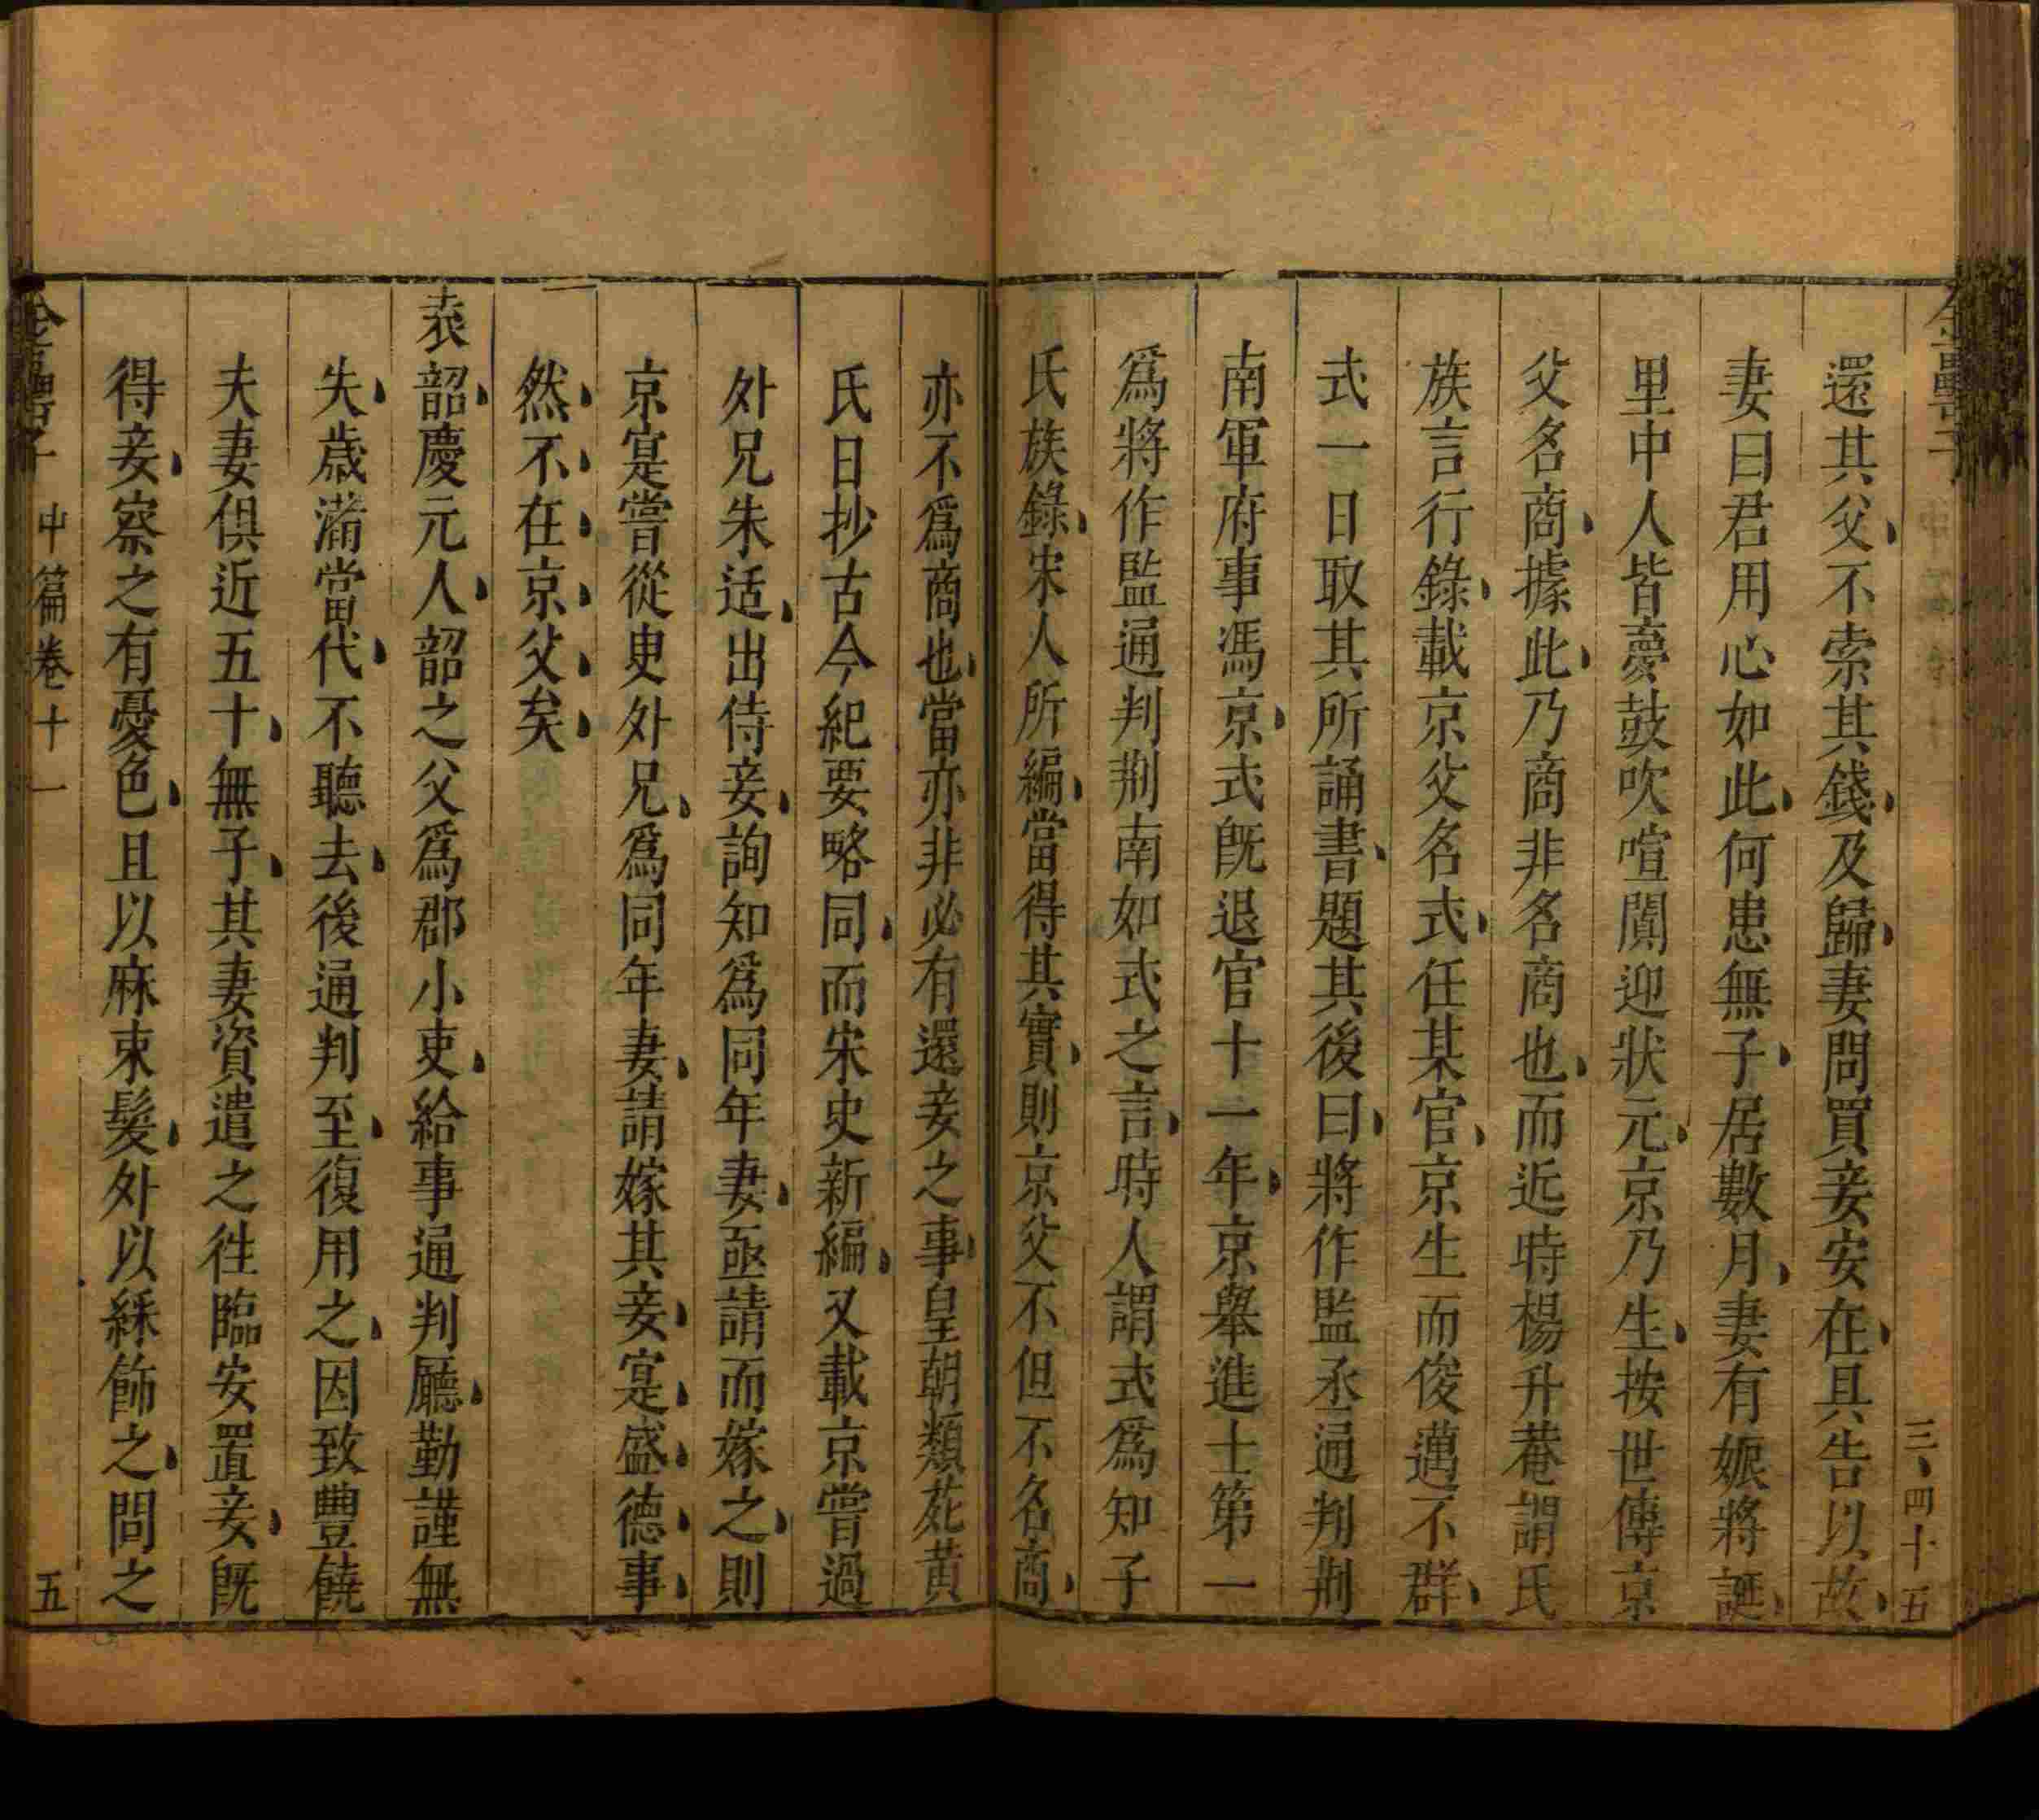 三四十五
還其父不索其錢及歸妻問買妾安在具告以故
妻曰君用心如此何患無子居數月妻有娠將誕
里中人皆夢鼓吹喧闐迎狀元京乃生按世傳京
父名商據此乃商非名商也而近時楊升菴謂氏
族言行錄載京父名式任某官京生而俊邁不群
式一日取其所誦書題其後曰將作監丞通判荆
南軍府事馮京式旣退官十一年京舉進士第一
爲將作監通判荆南如式之言時人謂式爲知子
氏族錄宋人所編當得其實則京父不但不名商
亦不爲商也當亦非必有還妾之事皇朝類苑黃
氏日抄古今紀要略同而宋史新編又載京嘗過
外兄朱适出侍妾詢知爲同年妻亟請而嫁之則
京寔嘗從叟外兄爲同年妻請嫁其妾寔盛德事
然不在京父矣
袁韶慶元人韶之父爲郡小吏給事通判廳勤謹無
失歲滿當代不聽去後通判至復用之因致豐饒
夫妻俱近五十無子其妻資遣之往臨安置妾旣
得妾察之有憂色且以麻束髮外以綵飾之問之
中篇卷十一
五